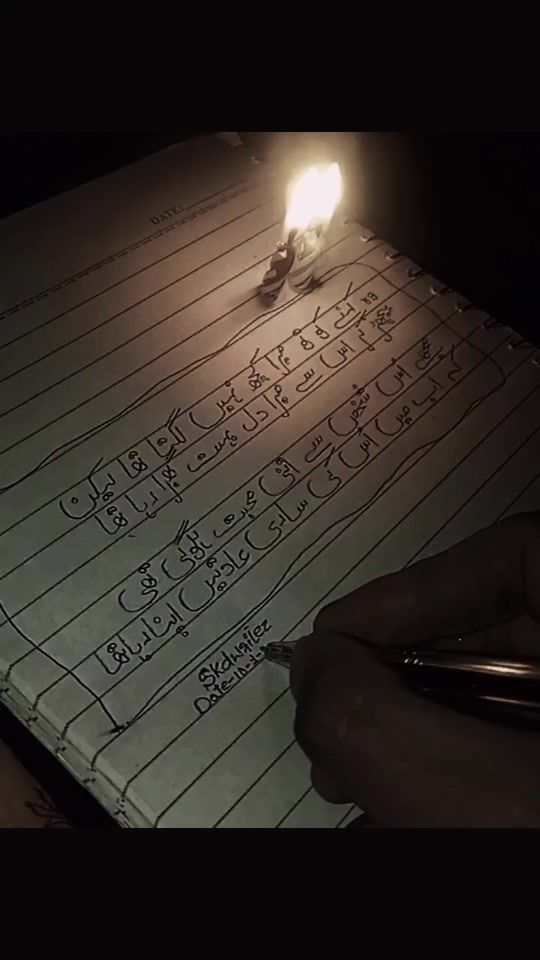 DATE:
وہ اپنے کو تو میرا کچھ نہیں لگتا تھا لیکن
مگر اس سے میرا دل بہت گھبرا رہا تھا
مجھے اُس شخص سے اتنی محبت ہوگئی تھی
کہ اب میں اُس کی ساری عادتیں اپنا رہا تھا
Skdwriter
Date-10-